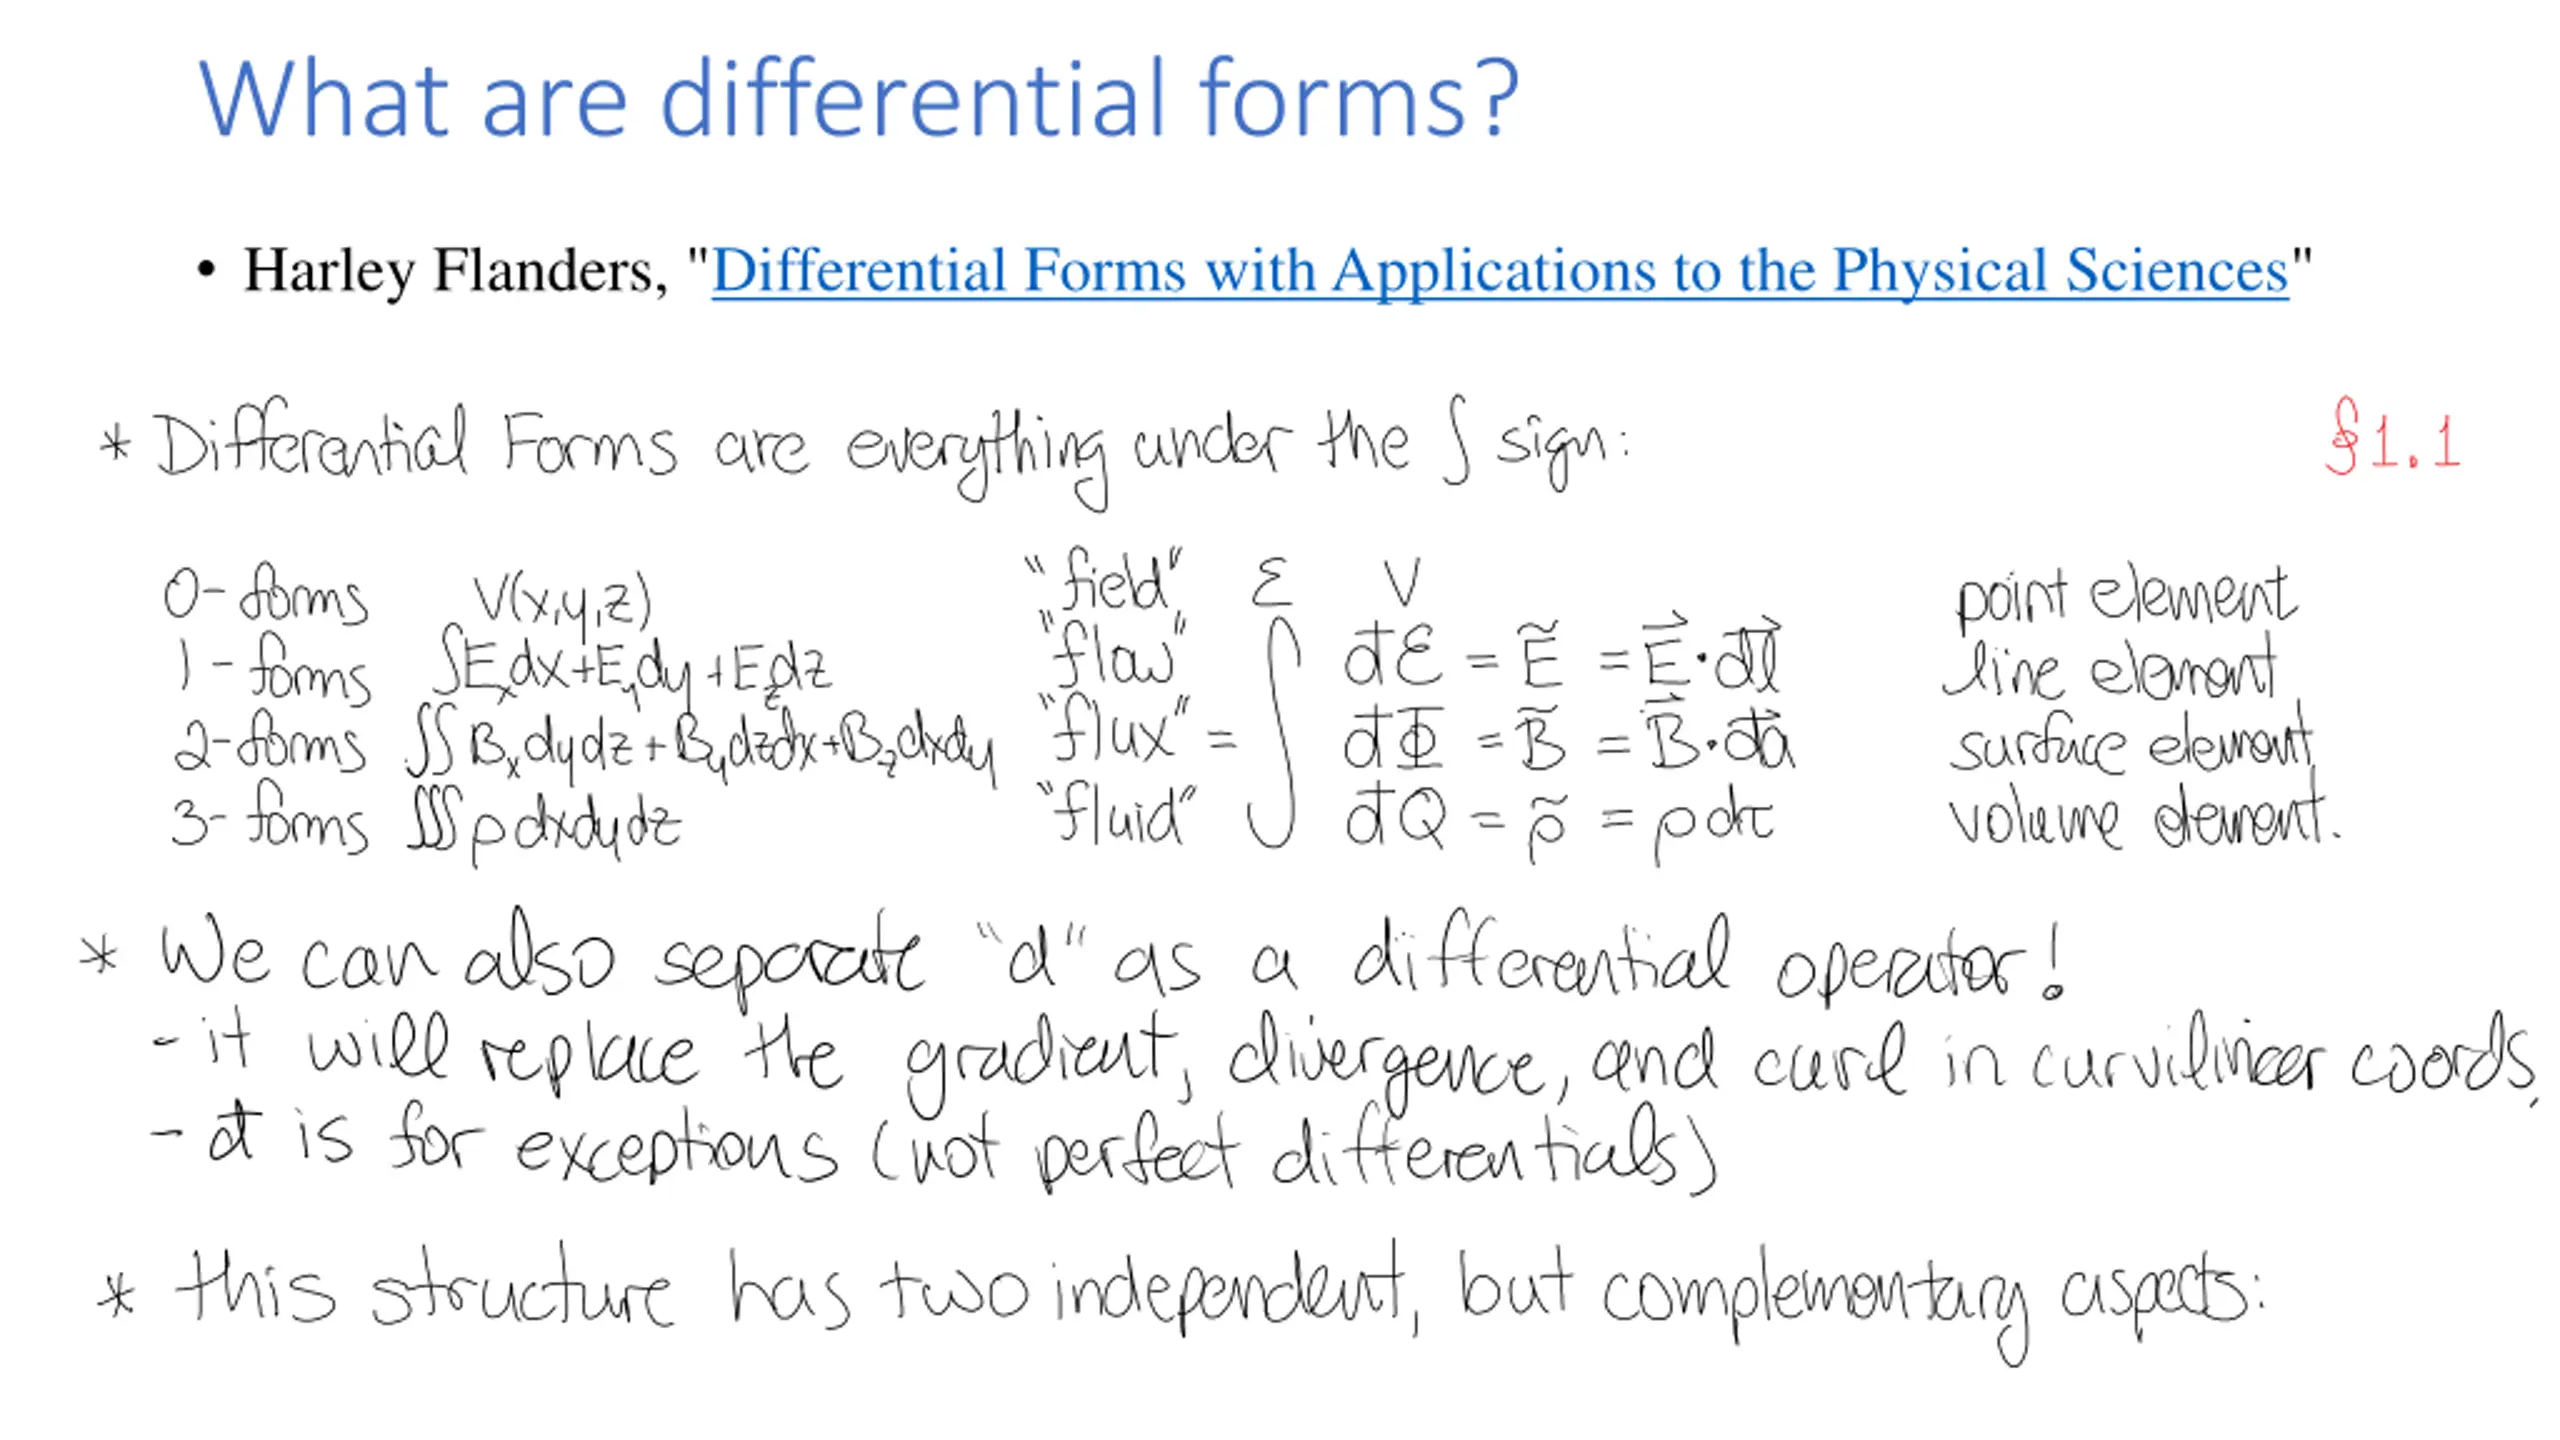 What are differential forms?
• Harley Flanders, "Differential Forms with Applications to the Physical Sciences"
* Differential Forms are everything under the ∫ sign: §1.1
0-forms V(x,y,z) "field" Ɛ V point element
1-forms ∫E_x dx+E_y dy+E_z dz "flow" đℰ = Ẽ = E⃗·dl⃗ line element
2-forms ∬B_x dydz+B_y dzdx+B_z dxdy "flux" = ∫ đΦ = B̃ = B⃗·da⃗ surface element
3-forms ∭ρdxdydz "fluid" đQ = ρ̃ = ρdτ volume element.
* We can also separate "d" as a differential operator!
- it will replace the gradient, divergence, and curl in curvilinear coords,
- đ is for exceptions (not perfect differentials)
* this structure has two independent, but complementary aspects: